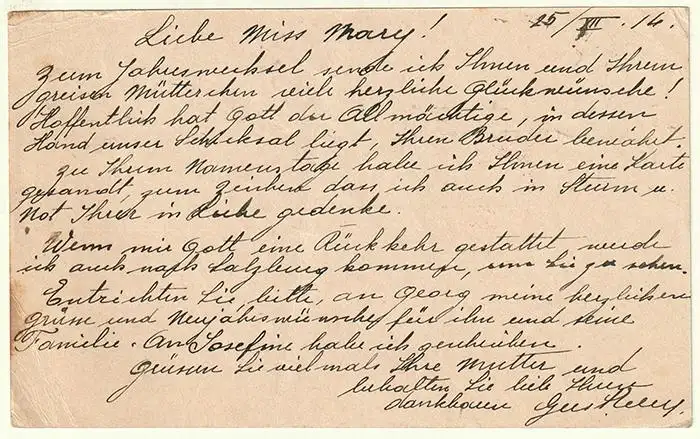 Liebe Miss Mary! 25/XII.14.
Zum Jahreswechsel sende ich Ihnen und Ihrem
greisen Mütterchen viele herzliche Glückwünsche!
Hoffentlich hat Gott der Allmächtige, in dessen
Hand unser Schicksal liegt, Ihren Bruder bewahrt.
Zu Ihrem Namenstage habe ich Ihnen eine Karte
gesandt, zum Zeichen dass ich auch in Sturm u.
Not Ihrer in Liebe gedenke.
Wenn mir Gott eine Rückkehr gestattet werde
ich auch nach Salzburg kommen, um Sie zu sehen.
Entrichten Sie, bitte, an Georg meine herzlichen
Grüsse und Neujahrswünsche für ihn und seine
Familie. An Josefine habe ich geschrieben.
Grüssen Sie vielmals Ihre Mutter und
behalten Sie lieb Ihren
dankbaren